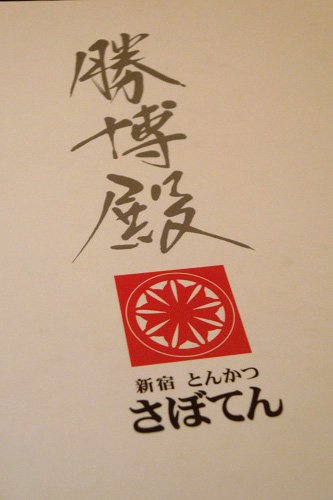 勝博殿
新宿 とんかつ
さぼてん